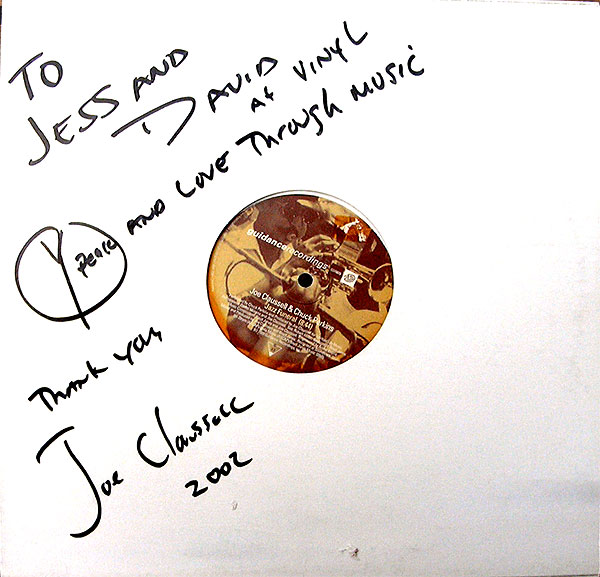 TO
JESS AND
DAVID
AT VINYL
Peace AND LOVE Through MUSIC
guidancerecordings.
Joe Claussell & Chuck Perkins
Jazz Funeral (9:44)
THANK YOU
Joe Claussell
2002